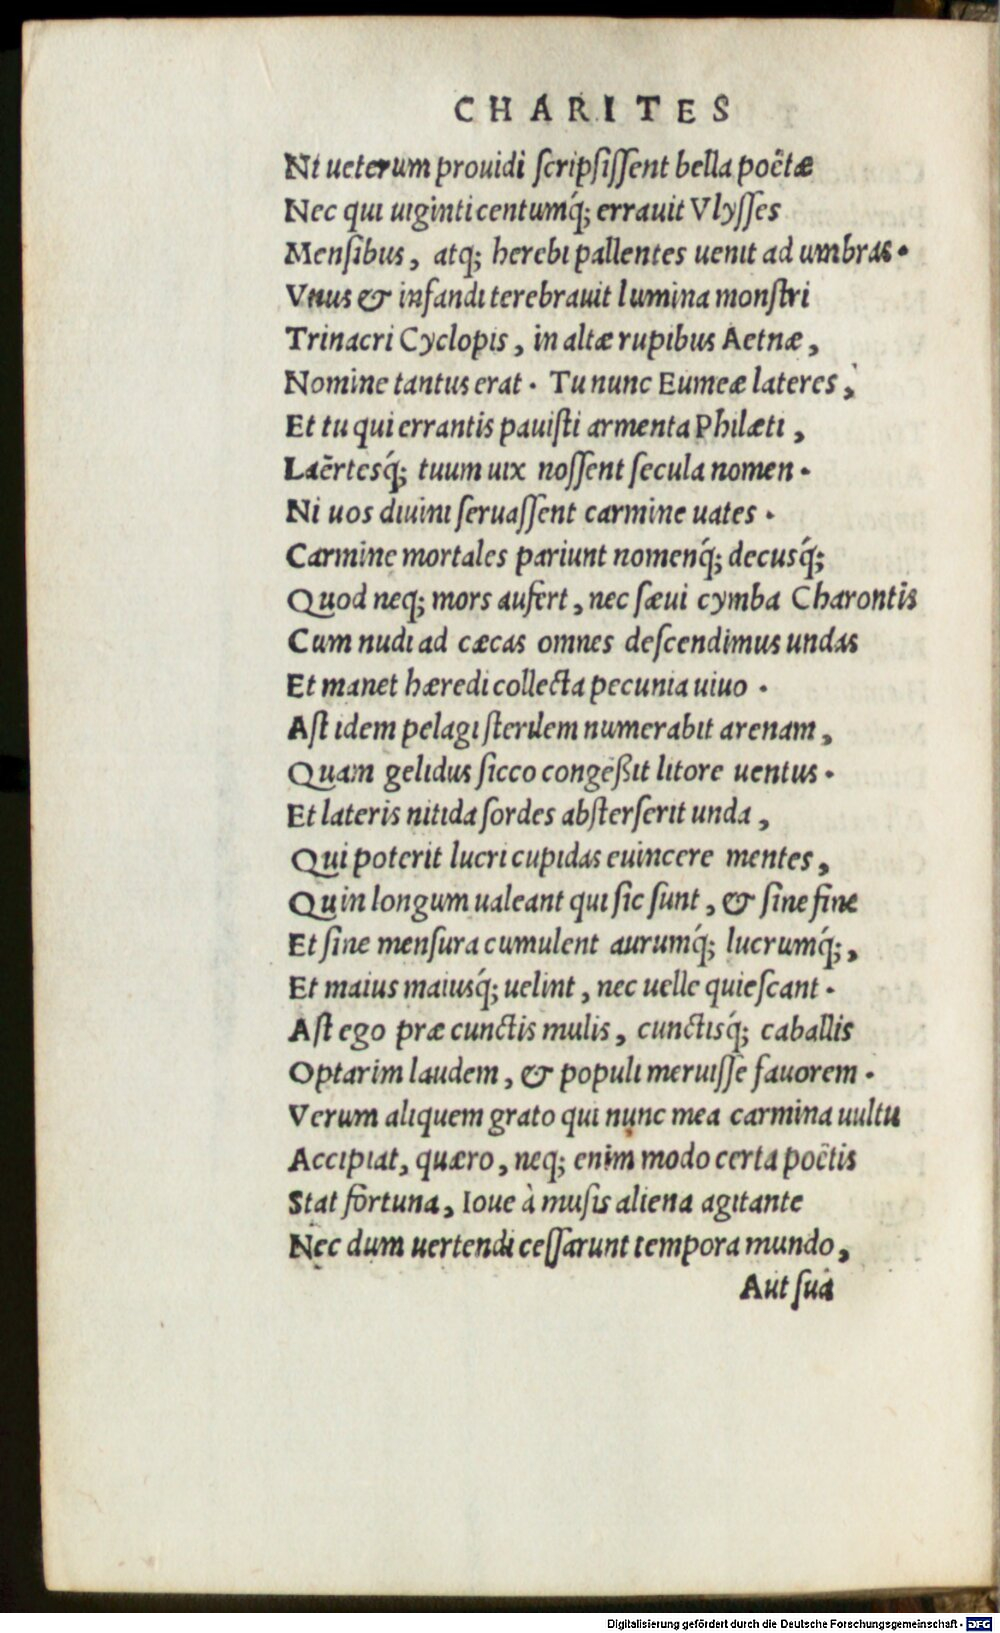 CHARITES
Ni ueterum prouidi ſcripſiſſent bella poëtæ
Nec qui uiginti centumq́; errauit Vlyſſes
Menſibus, atq; herebi pallentes uenit ad umbras.
Vnus & infandi terebrauit lumina monſtri
Trinacri Cyclopis, in altæ rupibus Aetnæ,
Nomine tantus erat. Tu nunc Eumeæ lateres,
Et tu qui errantis pauiſti armenta Philæti,
Laërtesq́; tuum uix noſſent ſecula nomen.
Ni uos diuini ſeruaſſent carmine uates.
Carmine mortales pariunt nomenq́; decusq́;
Quod neq; mors aufert, nec ſæui cymba Charontis
Cum nudi ad cæcas omnes deſcendimus undas
Et manet hæredi collecta pecunia uiuo.
Aſt idem pelagi ſterilem numerabit arenam,
Quam gelidus ſicco congeßit litore uentus.
Et lateris nitida ſordes abſterſerit unda,
Qui poterit lucri cupidas euincere mentes,
Quin longum ualeant qui ſic ſunt, & ſine fine
Et ſine menſura cumulent aurumq́; lucrumq́;,
Et maius maiusq́; uelint, nec uelle quieſcant.
Aſt ego præ cunctis mulis, cunctisq́; caballis
Optarim laudem, & populi meruiſſe fauorem.
Verum aliquem grato qui nunc mea carmina uultu
Accipiat, quæro, neq; enim modo certa poëtis
Stat fortuna, Ioue à muſis aliena agitante
Nec dum uertendi ceſſarunt tempora mundo,
Aut ſua
Digitalisierung gefördert durch die Deutsche Forschungsgemeinschaft - DFG